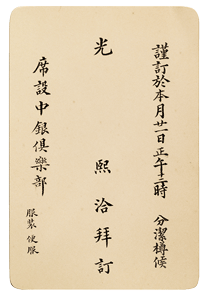 謹訂於本月廿一日正午十二時 分潔樽候
光
熙洽拜訂
席設中銀俱樂部
服裝 便服